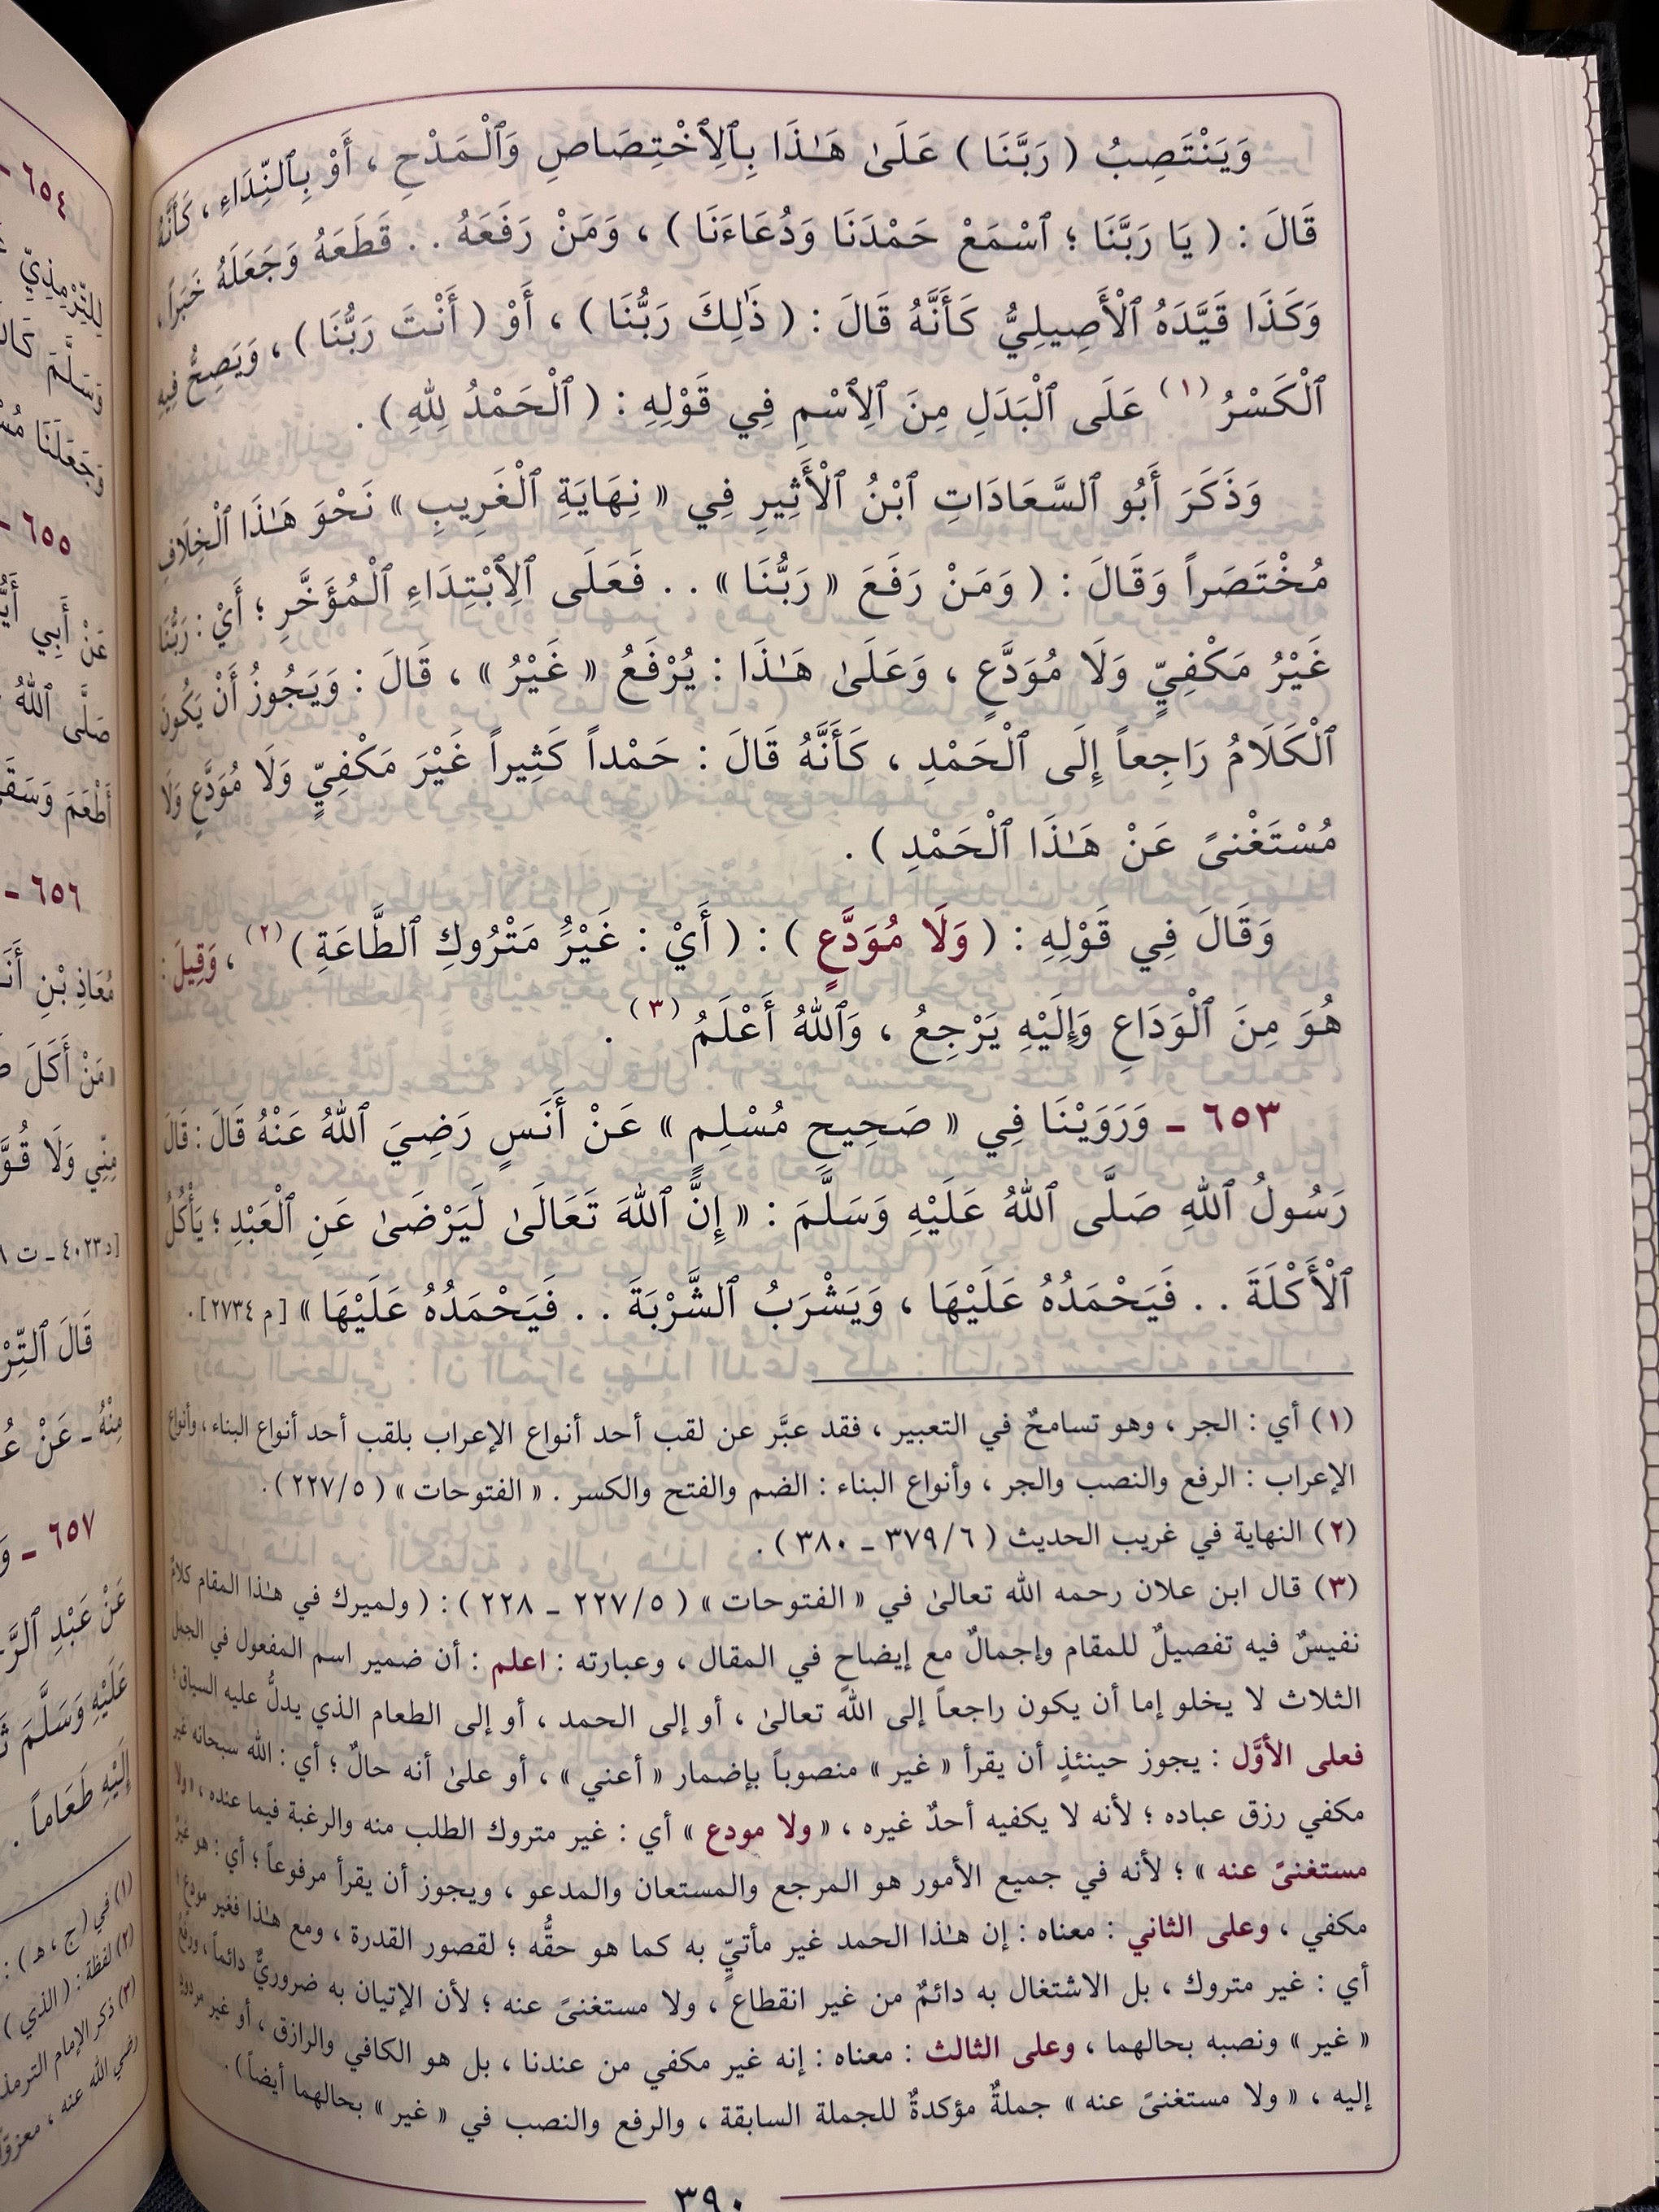 وَيَنْتَصِبُ ( رَبَّنَا ) عَلَىٰ هَـٰذَا بِٱلِٱخْتِصَاصِ وَٱلْمَدْحِ ، أَوْ بِٱلنِّدَاءِ ، كَأَنَّهُ
قَالَ : ( يَا رَبَّنَا ؛ ٱسْمَعْ حَمْدَنَا وَدُعَاءَنَا ) ، وَمَنْ رَفَعَهُ . . قَطَعَهُ وَجَعَلَهُ خَبَراً ،
وَكَذَا قَيَّدَهُ ٱلْأَصِيلِيُّ كَأَنَّهُ قَالَ : ( ذَٰلِكَ رَبُّنَا ) ، أَوْ ( أَنْتَ رَبُّنَا ) ، وَيَصِحُّ فِيهِ
ٱلْكَسْرُ (١) عَلَى ٱلْبَدَلِ مِنَ ٱلِٱسْمِ فِي قَوْلِهِ : ( ٱلْحَمْدُ لِلهِ ) .
وَذَكَرَ أَبُو ٱلسَّعَادَاتِ ٱبْنُ ٱلْأَثِيرِ فِي « نِهَايَةِ ٱلْغَرِيبِ » نَحْوَ هَـٰذَا ٱلْخِلَافِ
مُخْتَصَراً وَقَالَ : ( وَمَنْ رَفَعَ « رَبُّنَا » . . فَعَلَى ٱلِٱبْتِدَاءِ ٱلْمُؤَخَّرِ ؛ أَيْ : رَبُّنَا
غَيْرُ مَكْفِيٍّ وَلَا مُوَدَّعٍ ، وَعَلَىٰ هَـٰذَا : يُرْفَعُ « غَيْرُ » ، قَالَ : وَيَجُوزُ أَنْ يَكُونَ
ٱلْكَلَامُ رَاجِعاً إِلَى ٱلْحَمْدِ ، كَأَنَّهُ قَالَ : حَمْداً كَثِيراً غَيْرَ مَكْفِيٍّ وَلَا مُوَدَّعٍ وَلَا
مُسْتَغْنىً عَنْ هَـٰذَا ٱلْحَمْدِ ) .
وَقَالَ فِي قَوْلِهِ : ( وَلَا مُوَدَّعٍ ) : ( أَيْ : غَيْرُ مَتْرُوكِ ٱلطَّاعَةِ ) (٢) ، وَقِيلَ :
هُوَ مِنَ ٱلْوَدَاعِ وَإِلَيْهِ يَرْجِعُ ، وَٱللهُ أَعْلَمُ (٣) .
٦٥٣ ـ وَرَوَيْنَا فِي « صَحِيحِ مُسْلِمٍ » عَنْ أَنَسٍ رَضِيَ ٱللهُ عَنْهُ قَالَ : قَالَ
رَسُولُ ٱللهِ صَلَّى ٱللهُ عَلَيْهِ وَسَلَّمَ : « إِنَّ ٱللهَ تَعَالَىٰ لَيَرْضَىٰ عَنِ ٱلْعَبْدِ ؛ يَأْكُلُ
ٱلْأَكْلَةَ . . فَيَحْمَدُهُ عَلَيْهَا ، وَيَشْرَبُ ٱلشَّرْبَةَ . . فَيَحْمَدُهُ عَلَيْهَا » [م ٢٧٣٤] .
(١) أي : الجر ، وهو تسامحٌ في التعبير ، فقد عبَّر عن لقب أحد أنواع الإعراب بلقب أحد أنواع البناء ، وأنواع
الإعراب : الرفع والنصب والجر ، وأنواع البناء : الضم والفتح والكسر . « الفتوحات » ( ٢٢٧/٥ ) .
(٢) النهاية في غريب الحديث ( ٣٧٩/٦ ـ ٣٨٠ ) .
(٣) قال ابن علان رحمه الله تعالىٰ في « الفتوحات » ( ٢٢٧/٥ ـ ٢٢٨ ) : ( ولميرك في هـٰذا المقام كلامٌ
نفيسٌ فيه تفصيلٌ للمقام وإجمالٌ مع إيضاحٍ في المقال ، وعبارته : اعلم : أن ضمير اسم المفعول في الجمل
الثلاث لا يخلو إما أن يكون راجعاً إلى الله تعالىٰ ، أو إلى الحمد ، أو إلى الطعام الذي يدلُّ عليه السياق ؛
فعلى الأوَّل : يجوز حينئذٍ أن يقرأ « غير » منصوباً بإضمار « أعني » ، أو علىٰ أنه حالٌ ؛ أي : الله سبحانه غير
مكفي رزق عباده ؛ لأنه لا يكفيه أحدٌ غيره ، « ولا مودع » أي : غير متروك الطلب منه والرغبة فيما عنده ، « ولا
مستغنىً عنه » ؛ لأنه في جميع الأمور هو المرجع والمستعان والمدعو ، ويجوز أن يقرأ مرفوعاً ؛ أي : هو غير
مكفي ، وعلى الثاني : معناه : إن هـٰذا الحمد غير مأتيٍّ به كما هو حقُّه ؛ لقصور القدرة ، ومع هـٰذا فغير مودع ؛
أي : غير متروك ، بل الاشتغال به دائمٌ من غير انقطاع ، ولا مستغنىً عنه ؛ لأن الإتيان به ضروريٌّ دائماً ، ورفع
« غير » ونصبه بحالهما ، وعلى الثالث : معناه : إنه غير مكفي من عندنا ، بل هو الكافي والرازق ، أو غير مردود
إليه ، « ولا مستغنىً عنه » جملةٌ مؤكدةٌ للجملة السابقة ، والرفع والنصب في « غير » بحالهما أيضاً ) .
٣٩٠
٦٥٤ ـ
لِلتِّرْمِذِيِّ
وَسَلَّمَ
وَجَعَلَنَا
٦٥٥ ـ
عَنْ أَبِي
صَلَّى ٱللهُ
أَطْعَمَ
٦٥٦ ـ
مُعَاذِ بْنِ
« مَنْ أَكَلَ
مِنِّي وَلَا
[د ٤٠٢٣ ـ ت
قَالَ
مِنْهُ ـ عَنْ
٦٥٧ ـ
عَنْ عَبْدِ
عَلَيْهِ وَسَلَّمَ
إِلَيْهِ طَعَاماً .
(١) في ( ج ، هـ ) :
(٢) لفظة : ( الذي )
(٣) ذكر الإمام
رضي الله عنه ،